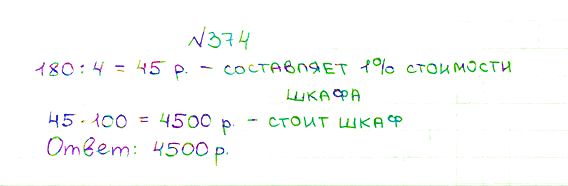 №374
180 : 4 = 45 р. - составляет 1% стоимости
шкафа
45 · 100 = 4500 р. - стоит шкаф
Ответ: 4500 р.